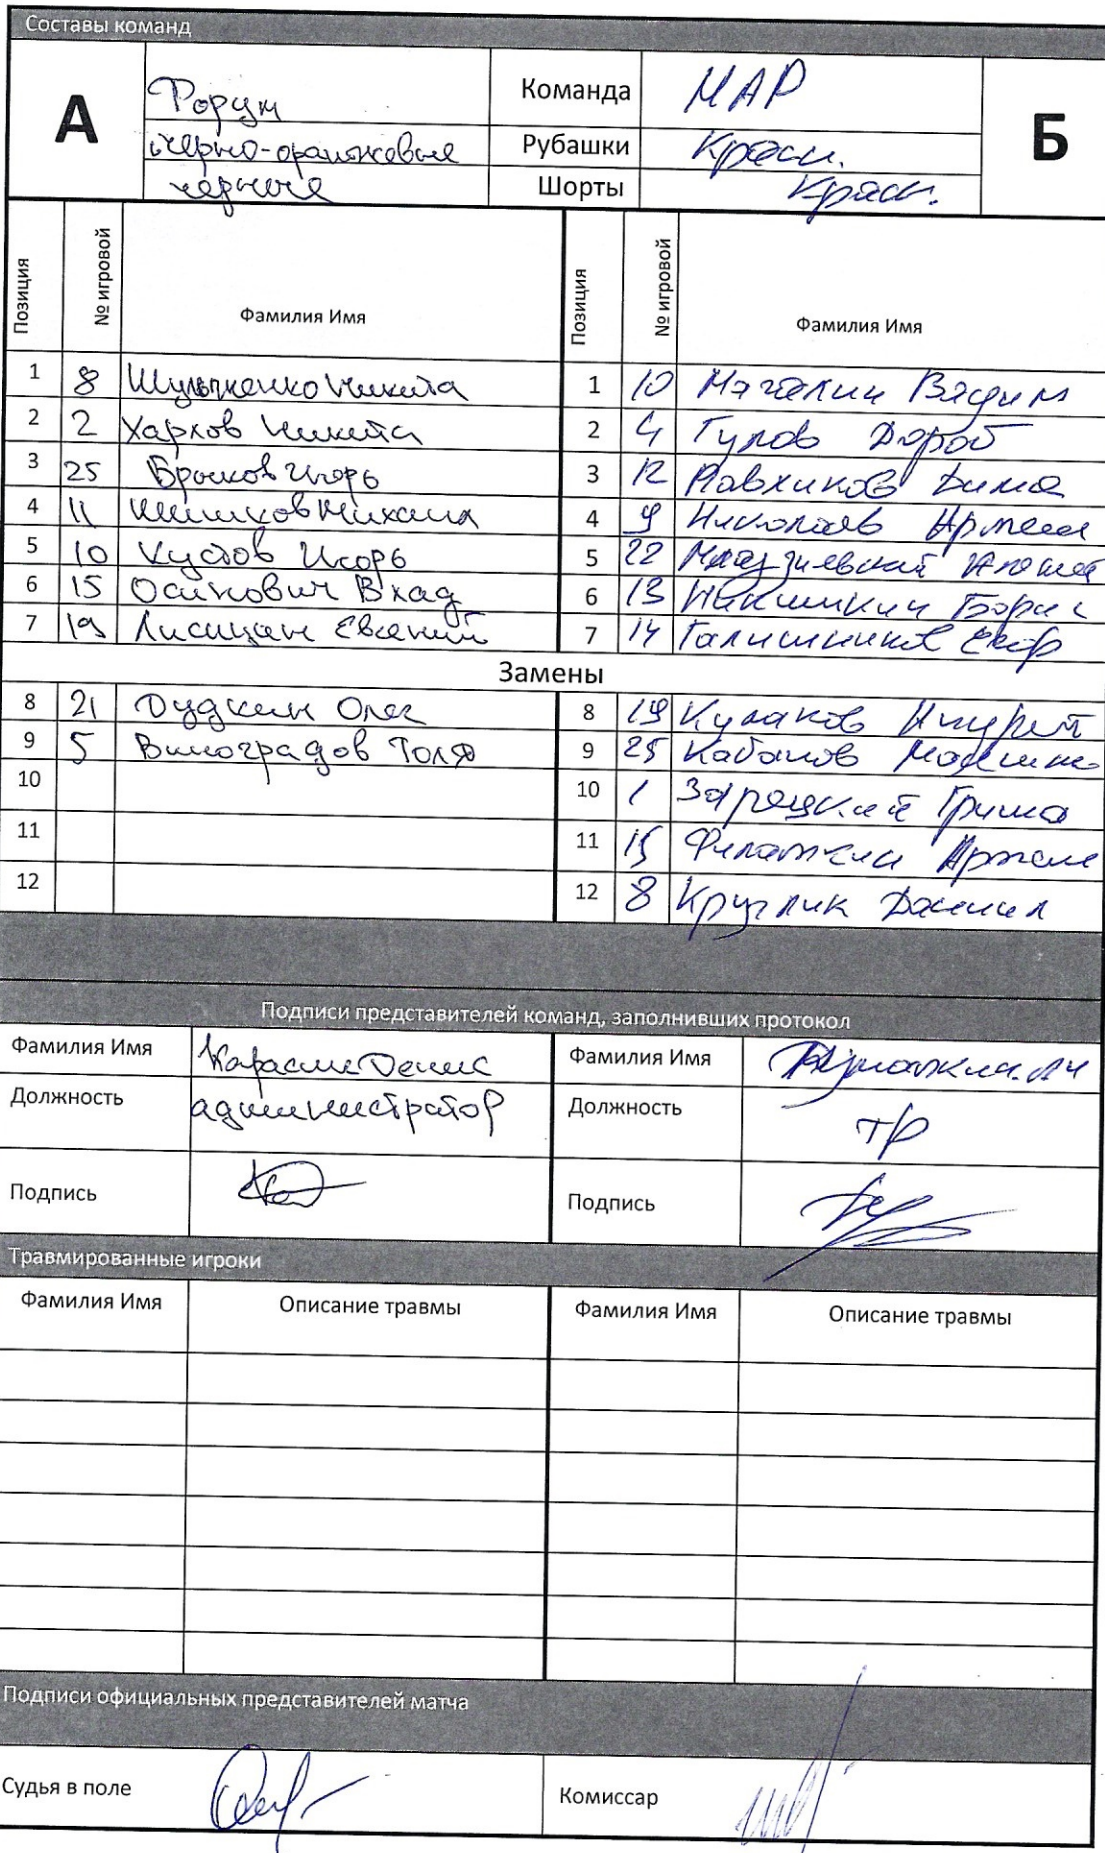 Составы команд
А Форум Команда МАР Б
черно-оранжевые Рубашки Красн.
черные Шорты Красн.
Позиция № игровой Фамилия Имя Позиция № игровой Фамилия Имя
1 8 Шульженко Никита 1 10 Вадим
2 2 Харков Никита 2 4 Гулов Дороб
3 25 Брыков Игорь 3 12 Павликов Дима
4 11 Шишков Михаил 4 9 Николаев Артем
5 10 Кустов Игорь 5 22
6 15 Осинович Влад 6 13 Никишкин Борис
7 19 Лисицан Евгений 7 14 Галишников Егор
Замены
8 21 Дудкин Олег 8 19 Кулаков
9 5 Виноградов Толя 9 25 Кабанов
10 10 1 Зарецкий Гриша
11 11 15 Филаткин Артем
12 12 8 Круглик Даниил
Подписи представителей команд, заполнивших протокол
Фамилия Имя Карасин Денис Фамилия Имя
Должность администратор Должность тр
Подпись Подпись
Травмированные игроки
Фамилия Имя Описание травмы Фамилия Имя Описание травмы
Подписи официальных представителей матча
Судья в поле Комиссар